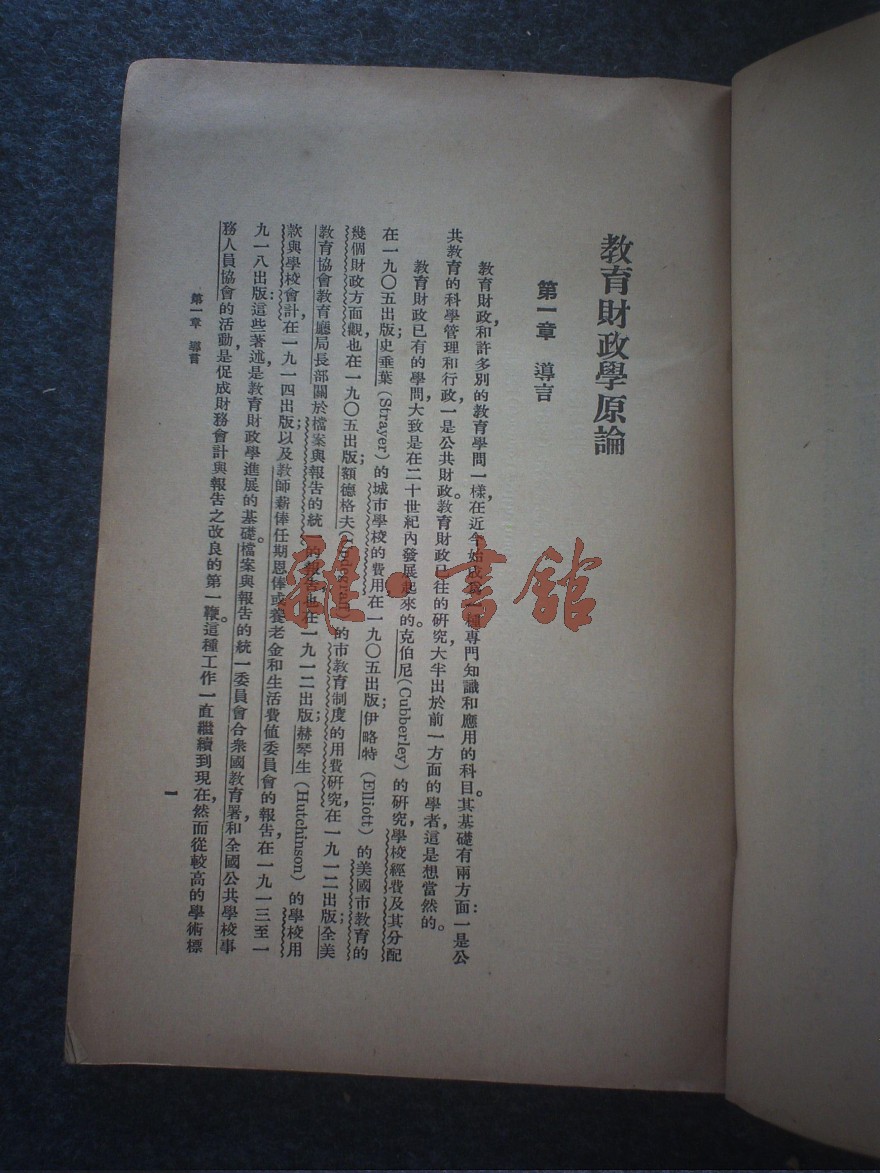 教育財政學原論
第一章 導言
教育財政，和許多別的教育學問一樣，在近今始成爲一種專門知識和應用的科目。其基礎有兩方面：一是公
共教育的科學管理和行政，一是公共財政。教育財政已往的研究，大半出於前一方面的學者，這是想當然的。
教育財政已有的學問，大致是在二十世紀內發展起來的。克伯尼(Cubberley)的研究，學校經費及其分配
在一九〇五出版；史垂葉(Strayer)的城市學校的費用在一九〇五出版；伊略特(Elliott)的美國市教育的
幾個財政方面觀也在一九〇五出版；額德格夫的市教育制度的用費研究，在一九一二出版；全美
教育協會教育廳局長部關於檔案與報告的統一的報告也在一九一二出版；赫琴生(Hutchinson)的學校用
款與學校會計，在一九一四出版；以及教師薪俸任期恩俸或養老金和生活費值委員會的報告，在一九一三至一
九一八出版。這些著述，是教育財政學進展的基礎。檔案與報告的統一委員會，合衆國教育署，和全國公共學校事
務人員協會的活動，是促成財務會計與報告之改良的第一鞭。這種工作一直繼續到現在，然而從較高的學術標
第一章 導言
一
雜·書館